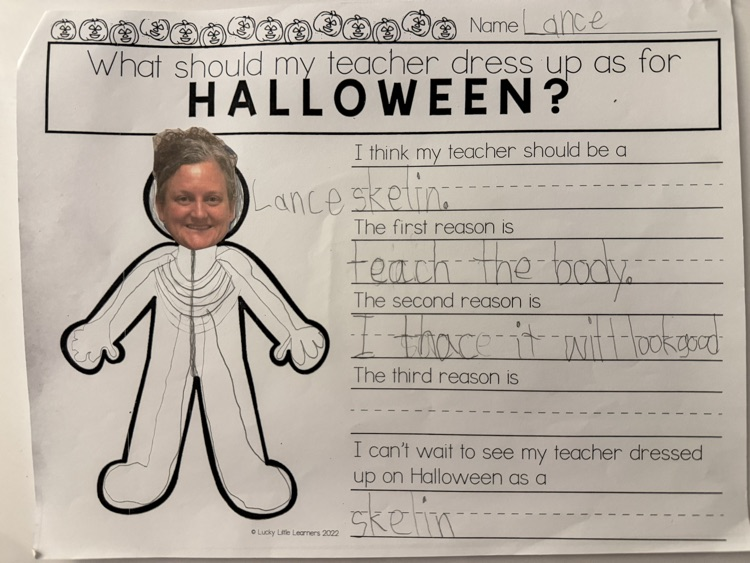 Name Lance
What should my teacher dress up as for
HALLOWEEN?
I think my teacher should be a
Lance skelin.
The first reason is
teach the body.
The second reason is
I thace it will look good
The third reason is
I can't wait to see my teacher dressed
up on Halloween as a
skelin
© Lucky Little Learners 2022